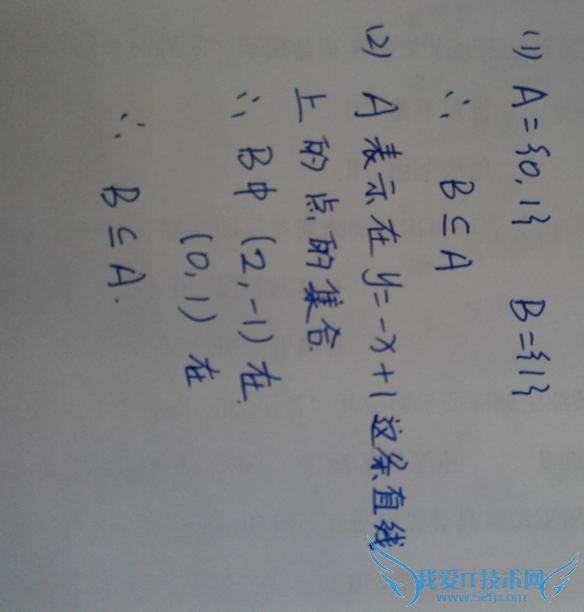 (1) A={0,1}  B={1}
∴ B⊆A
(2) A表示在y=-x+1这条直线
上的点的集合.
∵ B中 (2,-1) 在.
(0,1) 在
∴ B⊆A.
我爱IT技术网
www.52ij.com